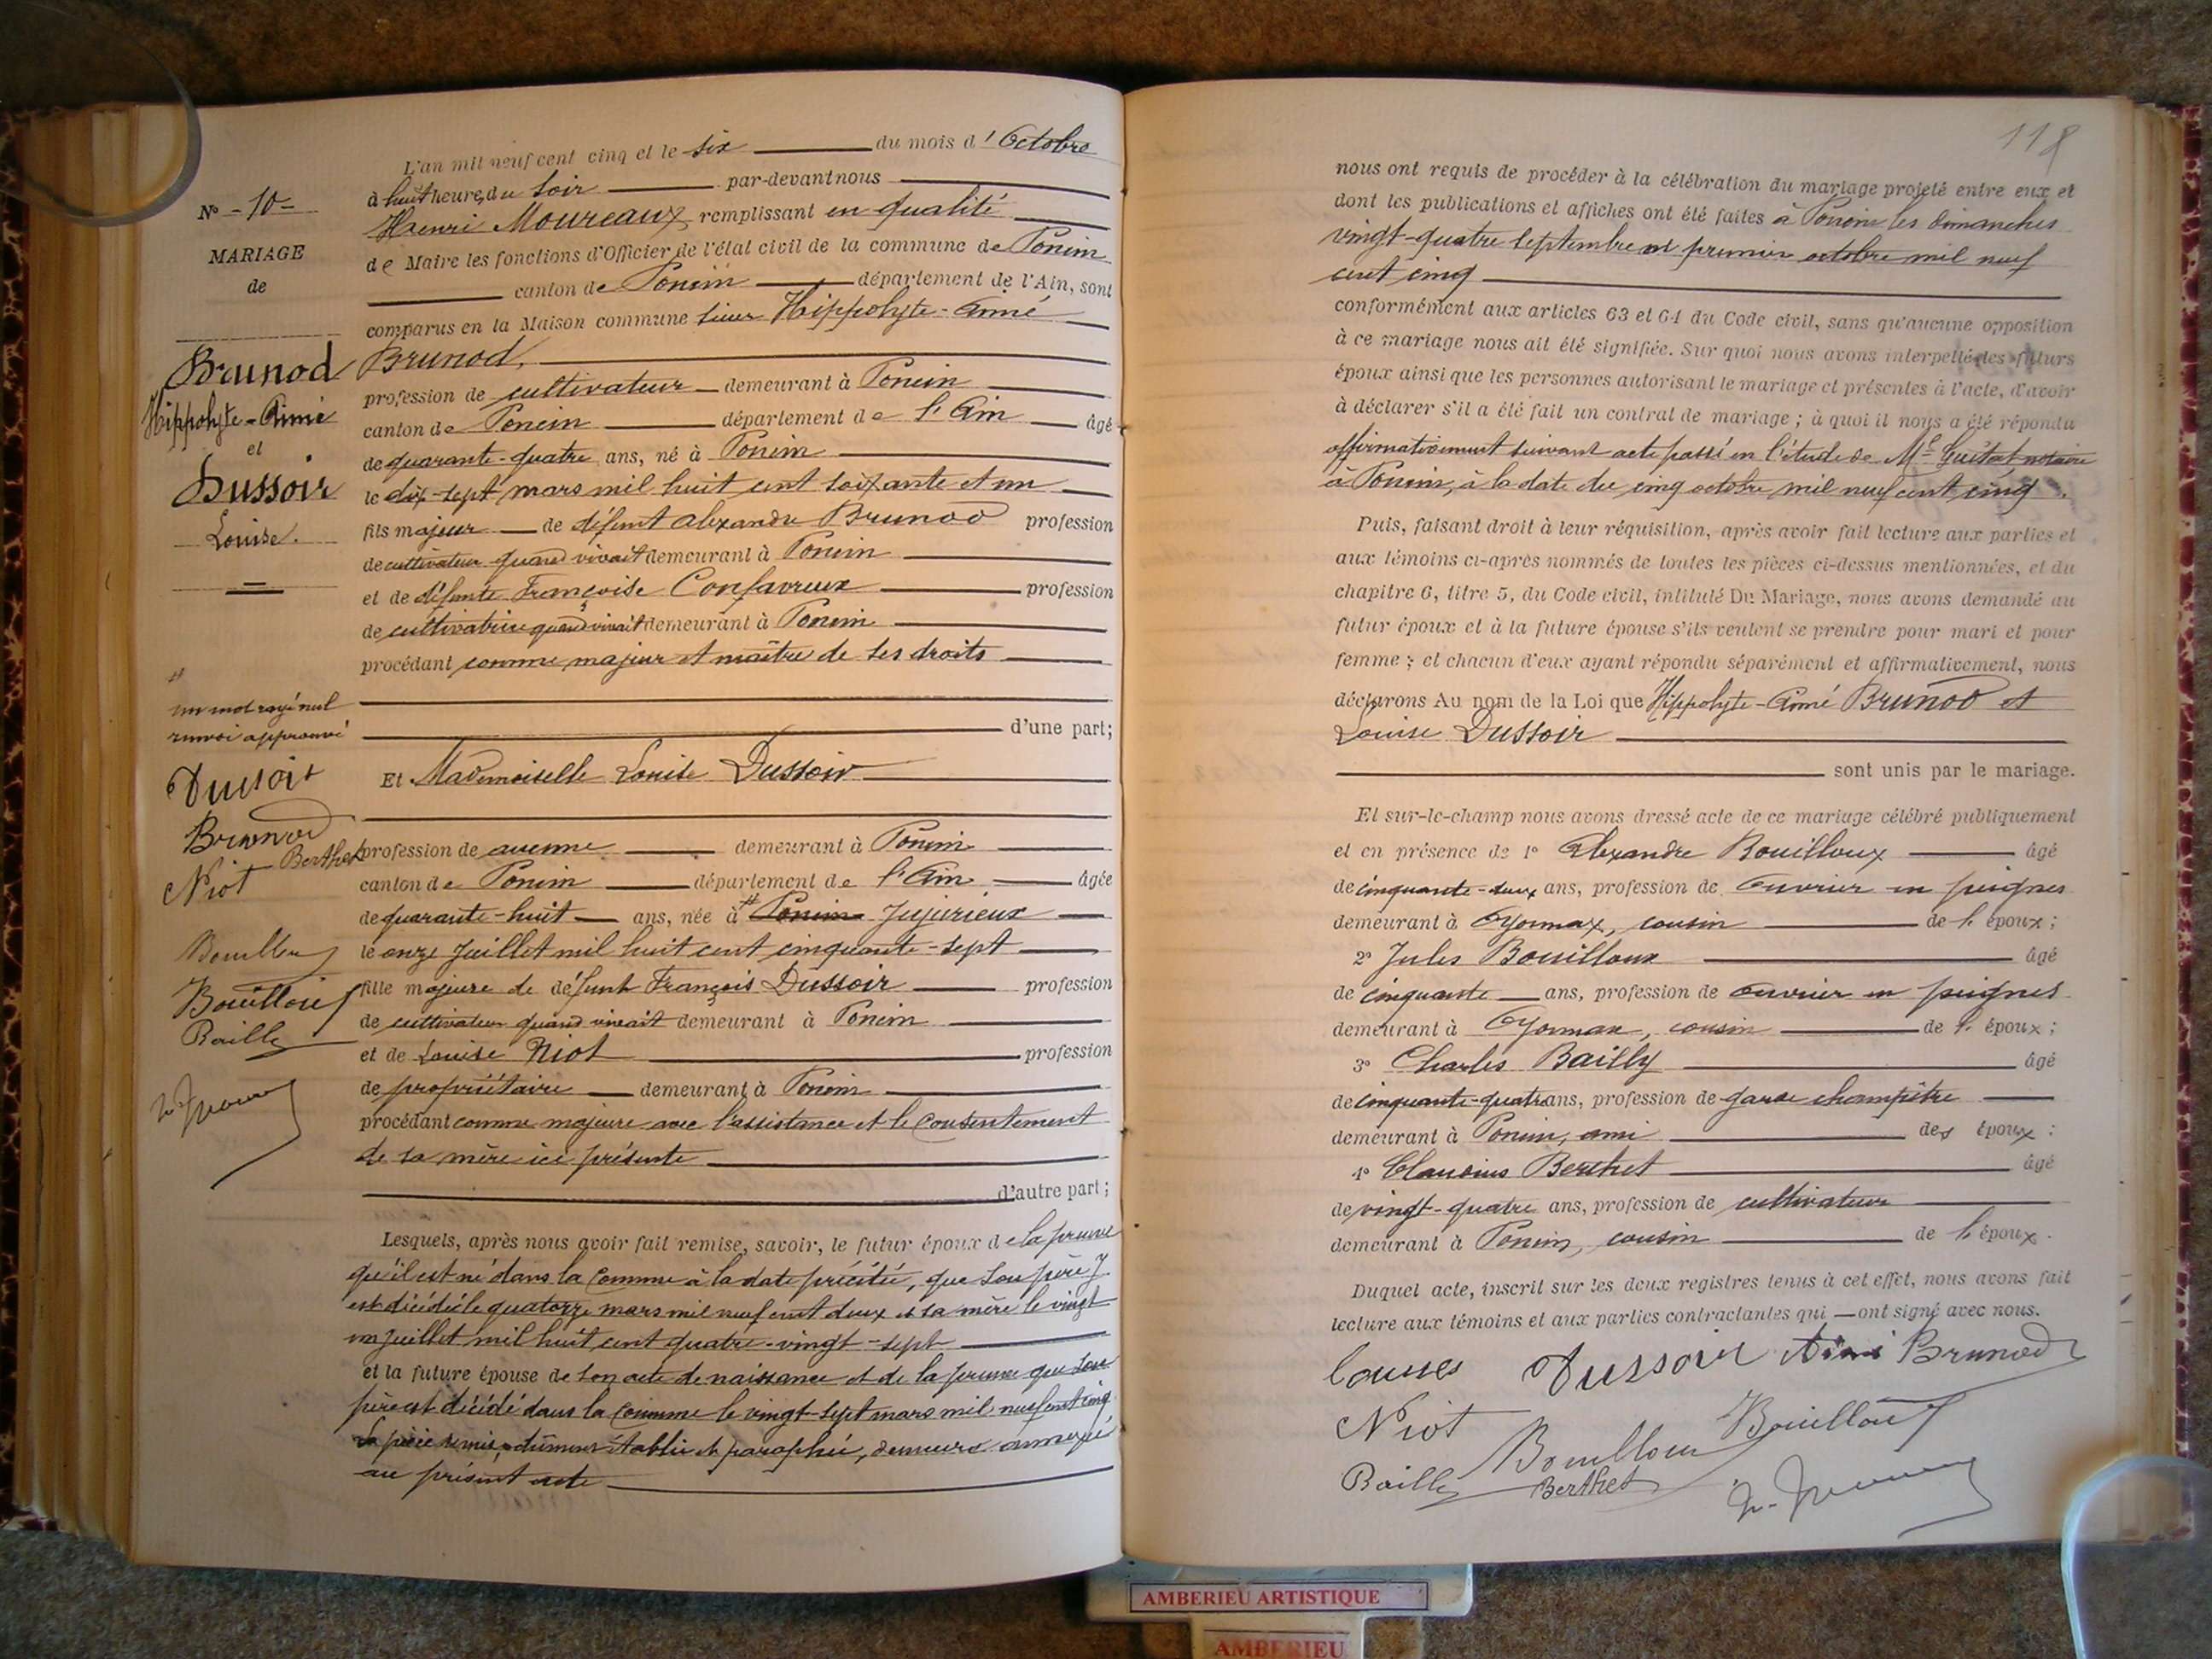 N° - 10 -
MARIAGE
de
Brunod
Hippolyte - Aimé
et
Dussoir
Louise.
un mot rayé nul
renvoi approuvé
Dussoir
Brunod
Niot Berthet
Bouilloux
Bouilloux
Bailly
L'an mil neuf cent cinq et le six du mois d'Octobre
à huit heures du soir par-devant nous
Henri Moureaux remplissant en qualité
de Maire les fonctions d'Officier de l'état civil de la commune de Poncin
canton de Poncin département de l'Ain, sont
comparus en la Maison commune sieur Hippolyte - Aimé
Brunod,
profession de cultivateur demeurant à Poncin
canton de Poncin département de l'Ain âgé
de quarante-quatre ans, né à Poncin
le dix-sept mars mil huit cent soixante et un
fils majeur de défunt Alexandre Brunod profession
de cultivateur quand vivait demeurant à Poncin
et de défunte Françoise Confavreux profession
de cultivatrice quand vivait demeurant à Poncin
procédant comme majeur et maître de ses droits
d'une part;
Et Mademoiselle Louise Dussoir
profession de aucune demeurant à Poncin
canton de Poncin département de l'Ain âgée
de quarante-huit ans, née à Poncin Jujurieux
le onze Juillet mil huit cent cinquante-sept
fille majeure de défunt François Dussoir profession
de cultivateur quand vivait demeurant à Poncin
et de Louise Niot profession
de propriétaire demeurant à Poncin
procédant comme majeure avec l'assistance et le consentement
de sa mère ici présente
d'autre part;
Lesquels, après nous avoir fait remise, savoir, le futur époux de la preuve
qu'il est né dans la Commune à la date précitée, que son père y
est décédé le quatorze mars mil neuf cent deux et sa mère le vingt
un juillet mil huit cent quatre-vingt-sept
et la future épouse de son acte de naissance et de la preuve que son
père est décédé dans la Commune le vingt-sept mars mil neuf cent cinq
La pièce remise, dûment établie et paraphée, demeure annexée
au présent acte
118
nous ont requis de procéder à la célébration du mariage projeté entre eux et
dont les publications et affiches ont été faites à Poncin les dimanches
vingt-quatre Septembre et premier octobre mil neuf
cent cinq
conformément aux articles 63 et 64 du Code civil, sans qu'aucune opposition
à ce mariage nous ait été signifiée. Sur quoi nous avons interpellé les futurs
époux ainsi que les personnes autorisant le mariage et présentes à l'acte, d'avoir
à déclarer s'il a été fait un contrat de mariage ; à quoi il nous a été répondu
affirmativement suivant acte passé en l'étude de Me Guitat notaire
à Poncin, à la date du cinq octobre mil neuf cent cinq.
Puis, faisant droit à leur réquisition, après avoir fait lecture aux parties et
aux témoins ci-après nommés de toutes les pièces ci-dessus mentionnées, et du
chapitre 6, titre 5, du Code civil, intitulé Du Mariage, nous avons demandé au
futur époux et à la future épouse s'ils veulent se prendre pour mari et pour
femme ; et chacun d'eux ayant répondu séparément et affirmativement, nous
déclarons Au nom de la Loi que Hippolyte-Aimé Brunod et
Louise Dussoir
sont unis par le mariage.
Et sur-le-champ nous avons dressé acte de ce mariage célébré publiquement
et en présence de 1° Alexandre Bouilloux âgé
de cinquante-deux ans, profession de Ouvrier en peignes
demeurant à Oyonnax, cousin de l'époux ;
2° Jules Bouilloux âgé
de cinquante ans, profession de Ouvrier en peignes
demeurant à Oyonnax, cousin de l'époux ;
3° Charles Bailly âgé
de cinquante-quatre ans, profession de garde champêtre
demeurant à Poncin, ami des époux ;
4° Claudius Berthet âgé
de vingt-quatre ans, profession de cultivateur
demeurant à Poncin, cousin de l'époux.
Duquel acte, inscrit sur les deux registres tenus à cet effet, nous avons fait
lecture aux témoins et aux parties contractantes qui ont signé avec nous.
Dussoir Aimé Brunod
Niot Bouilloux Bouilloux
Bailly Berthet
AMBERIEU ARTISTIQUE
AMBERIEU